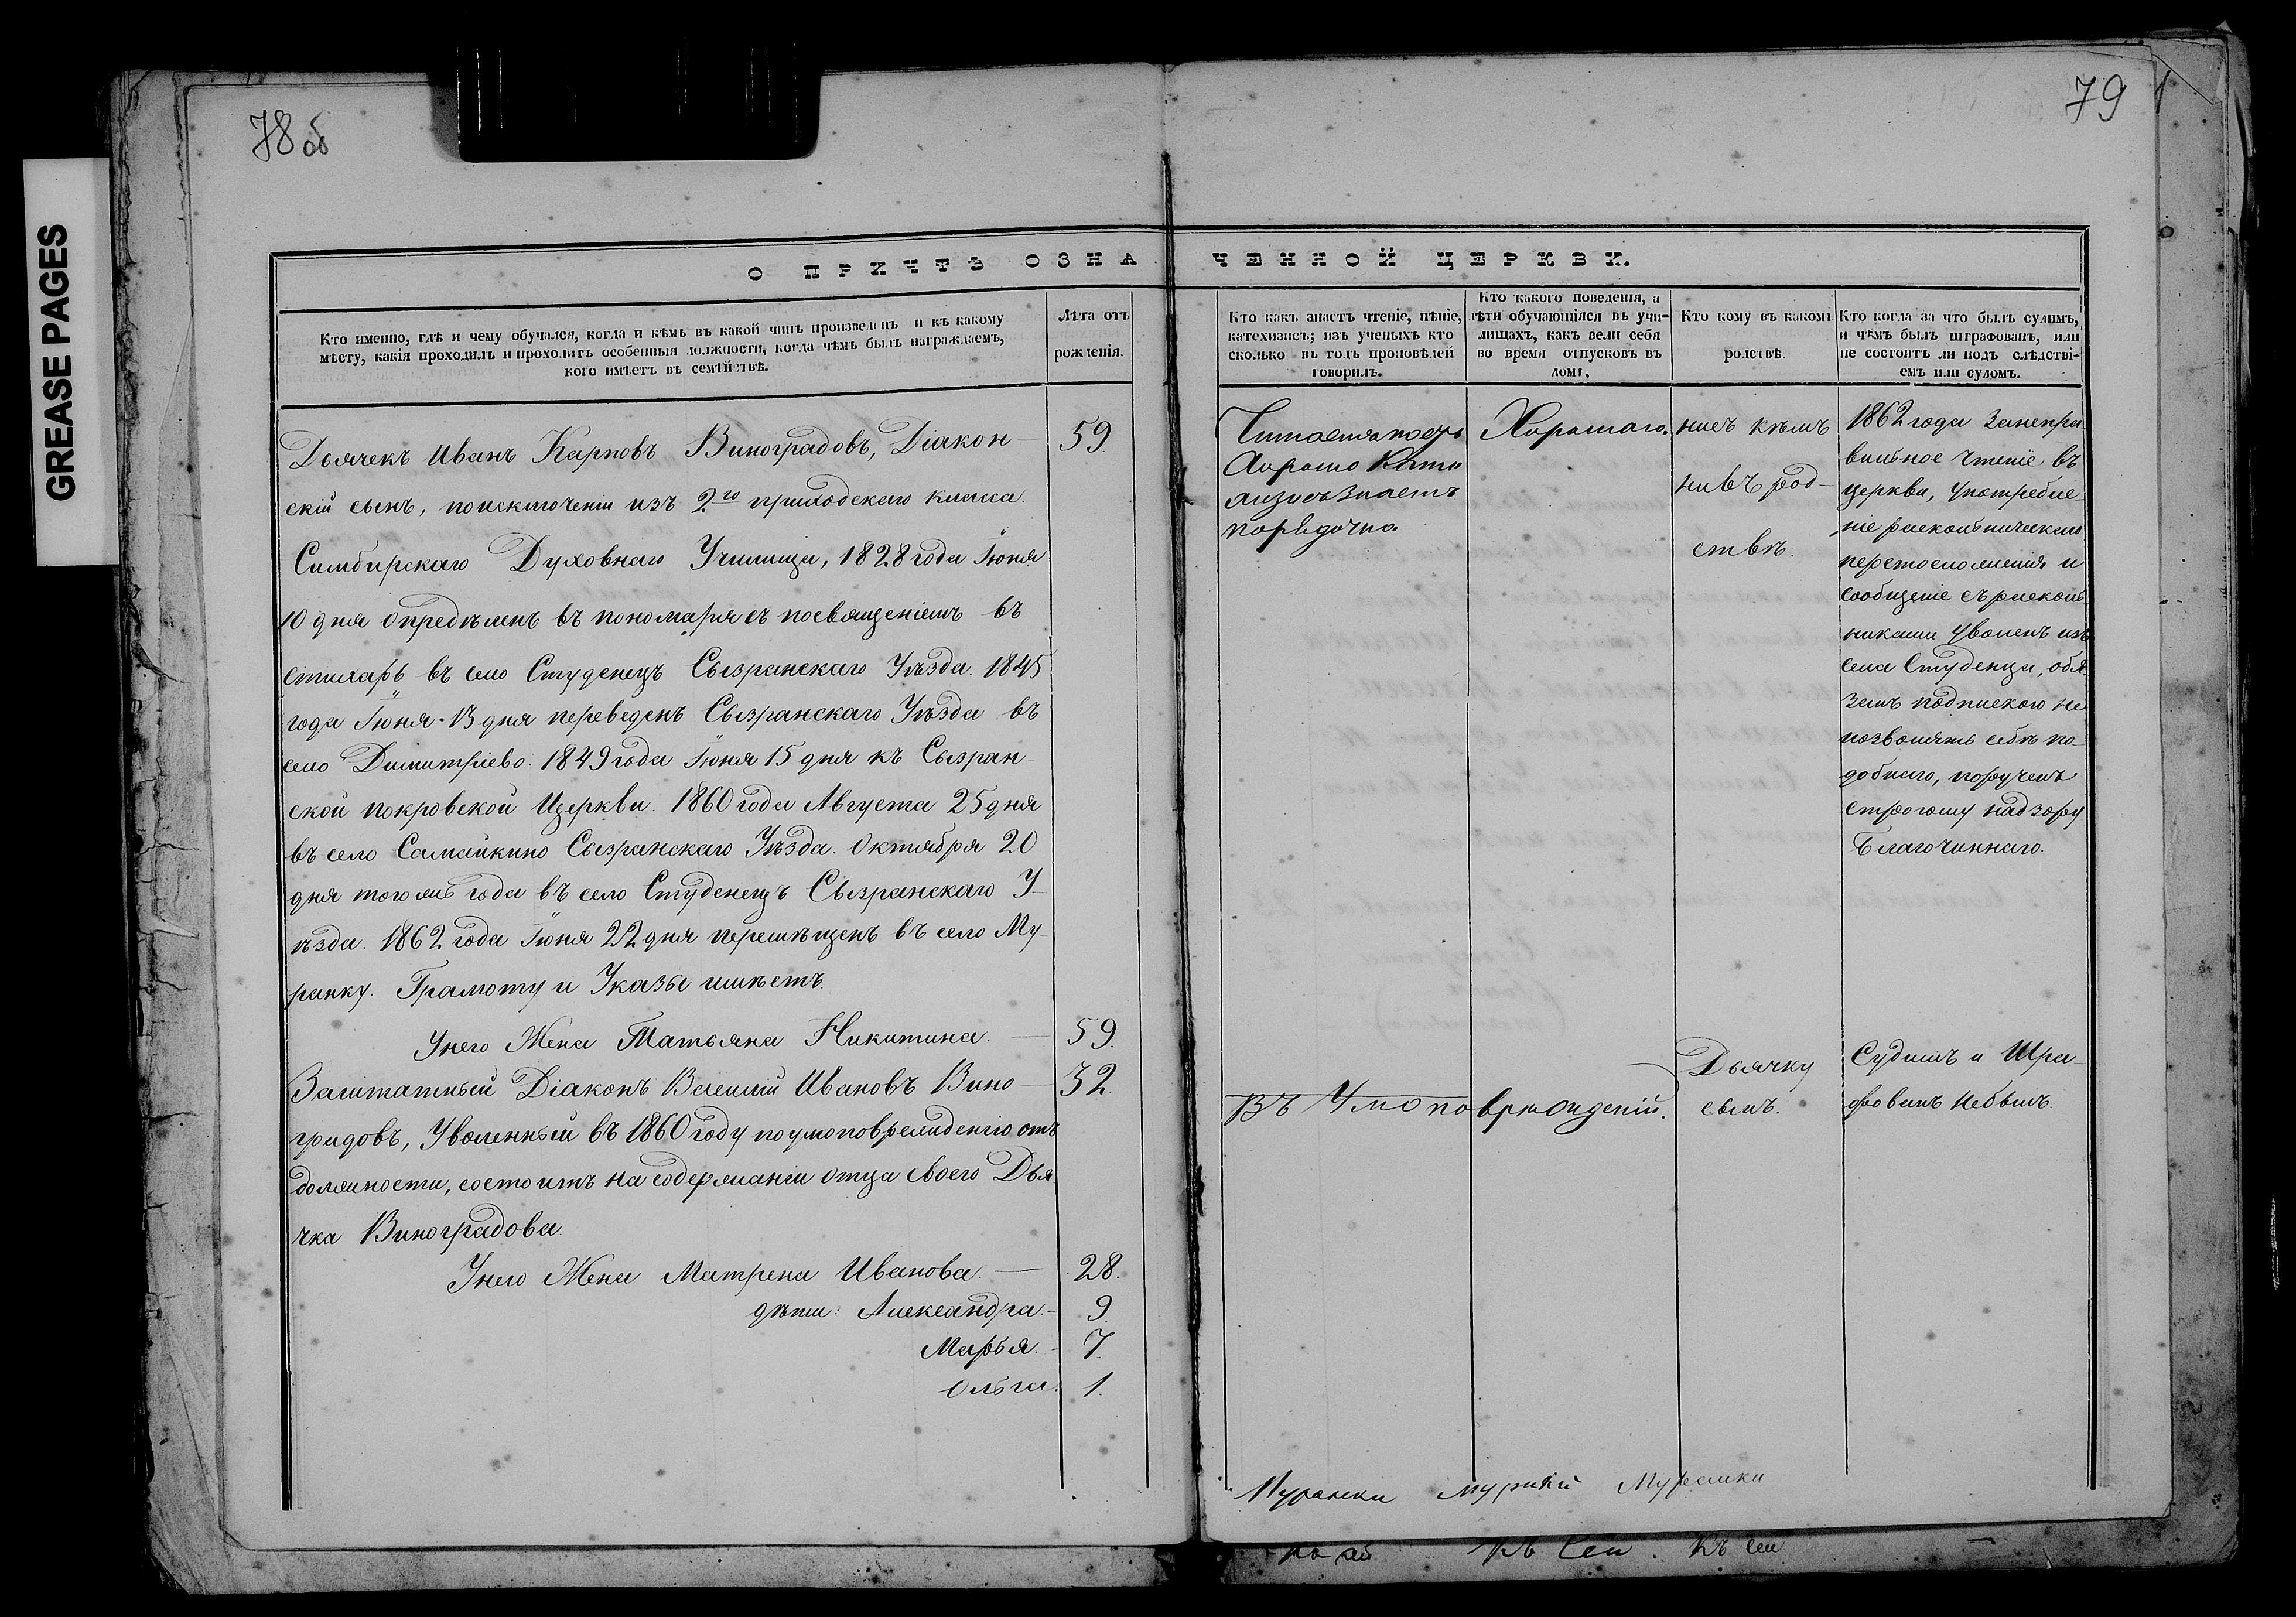 GREASE PAGES
78 об
79
О ПРИЧТѢ ОЗНА
ЧЕННОЙ ЦЕРКВИ.
Кто именно, гдѣ и чему обучался, когда и кѣмъ въ какой чинъ произведенъ и къ какому
мѣсту, какія проходилъ и проходитъ особенныя должности, когда чѣмъ былъ награждаемъ,
кого имѣетъ въ семействѣ.
Лѣта отъ
рожденія.
Дьячекъ Иванъ Карповъ Виноградовъ, Діакон-
59.
скій сынъ, поисключеніи изъ 2го приходскаго класса
Симбирскаго Духовнаго Училища, 1828 года Іюня
10 дня опредѣленъ въ пономаря съ посвященіемъ въ
стихарь въ село Студенецъ Сызранскаго Уѣзда. 1845
года Іюня 13 дня переведенъ Сызранскаго Уѣзда въ
село Димитріево. 1849 года Іюня 15 дня къ Сызран-
ской покровской Церкви. 1860 года Августа 25 дня
въ село Самайкино Сызранскаго Уѣзда. Октября 20
дня тогожъ года въ село Студенецъ Сызранскаго У-
ѣзда. 1862 года Іюня 22 дня перемѣщенъ въ село Му-
ранку. Грамоту и Указы имѣетъ.
Унего Жена Татьяна Никитина. — 59.
Заштатный Діаконъ Василій Ивановъ Вино- 32.
градовъ, Уволенный въ 1860 году поумоповрежденію отъ
должности, состоитъ на содержаніи отца своего Дья
чка Виноградова.
Унего Жена Матрена Иванова. — 28.
дѣти: Александра. — 9.
Марья. - 7.
Ольга. 1.
Кто какъ знаетъ чтеніе, пѣніе,
катехизисъ; изъ ученыхъ кто
сколько въ годъ проповѣдей
говорилъ.
Кто какого поведенія, а
дѣти обучающіяся въ учи-
лищахъ, какъ вели себя
во время отпусковъ въ
домъ.
Кто кому въ какомъ
родствѣ.
Кто когда за что былъ судимъ,
и чѣмъ былъ штрафованъ, или
не состоитъ ли подъ слѣдстві-
емъ или судомъ.
Хорошо Кати
хизисъ Знаетъ
порядочно.
Хорошаго.
ниСъ кѣмъ
нивъ род-
ствѣ.
1862 года Занепра
вильное чтеніе въ
церкви, употребле-
ніе раскольническаго
перстосложенія и
сообщеніе съ расколь
никами Уволенъ изъ
села Студенца, обя-
занъ подпискою не
позволять себѣ по-
добнаго, порученъ
строгому надзору
Благочиннаго.
Въ Умоповрежденіи.
Дьячку
сынъ.
Судимъ и Штра-
фованъ небылъ.
Муранки
Къ сей